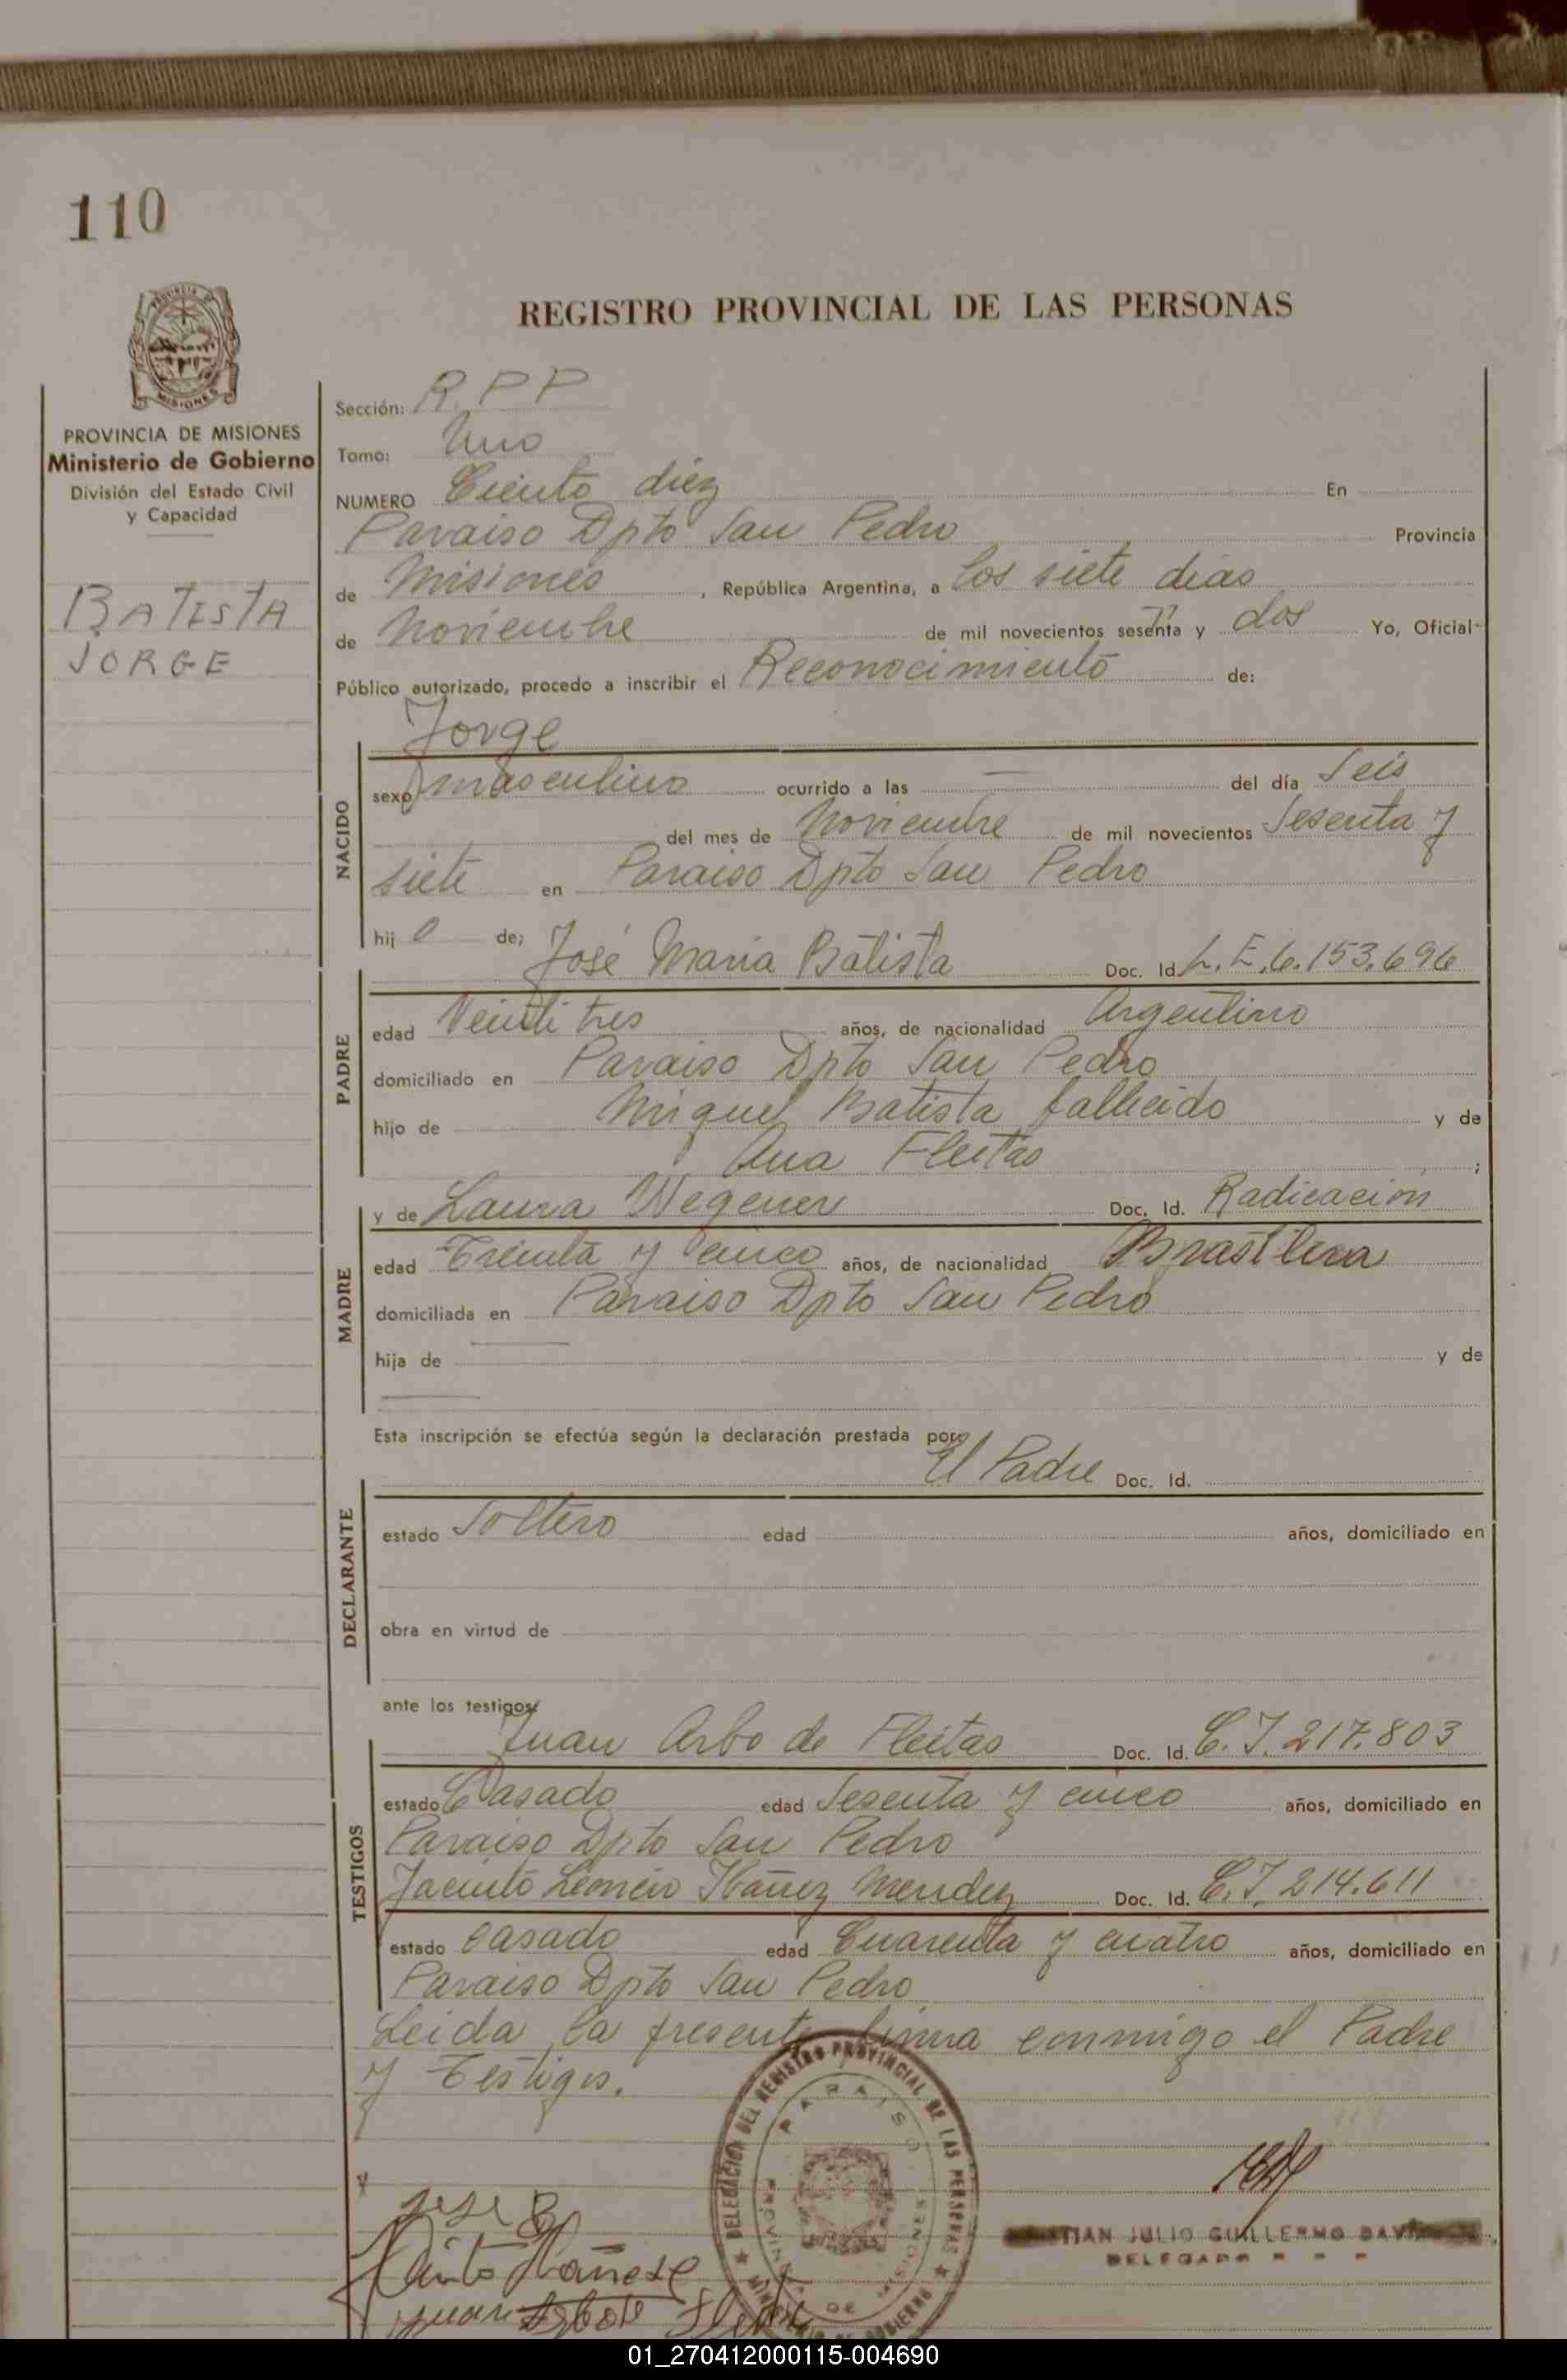 110
REGISTRO PROVINCIAL DE LAS PERSONAS
MISIONES
PROVINCIA DE MISIONES
Ministerio de Gobierno
División del Estado Civil
y Capacidad
BATISTA
JORGE
Sección: R.P.P
Tomo: Uno
NUMERO Ciento diez En
Paraiso Dpto San Pedro Provincia
de Misiones, República Argentina, a los siete dias
de Noviembre de mil novecientos sesenta y dos Yo, Oficial
Público autorizado, procedo a inscribir el Reconocimiento de:
Jorge
NACIDO
sexo masculino ocurrido a las — del día Seis
del mes de Noviembre de mil novecientos Sesenta y
siete en Paraiso Dpto San Pedro
hijo de; José Maria Batista Doc. Id. L.E. 6.153.696
PADRE
edad Veinti tres años, de nacionalidad Argentino
domiciliado en Paraiso Dpto San Pedro
hijo de Miguel Batista fallecido y de
Ana Fleitas;
y de Laura Wegener Doc. Id. Radicación
MADRE
edad Treinta y cinco años, de nacionalidad Brasilera
domiciliada en Paraiso Dpto San Pedro
hija de — y de
—
Esta inscripción se efectúa según la declaración prestada por:
El Padre Doc. Id.
DECLARANTE
estado Soltero edad años, domiciliado en
obra en virtud de
ante los testigos
Juan Arbo de Fleitas Doc. Id. C.I. 217.803
TESTIGOS
estado Casado edad Sesenta y cinco años, domiciliado en
Paraiso Dpto San Pedro
Jacinto Leoncio Ibañez Mendez Doc. Id. C.I. 214.611
estado casado edad Cuarenta y cuatro años, domiciliado en
Paraiso Dpto San Pedro
Leida la presente firma conmigo el Padre
y Testigos.
DELEGACION DEL REGISTRO PROVINCIAL DE LAS PERSONAS
PARAISO
PROVINCIA DE MISIONES
MINISTERIO DE GOBIERNO
Jose B
JULIO GUILLERMO
DELEGADO
01_270412000115-004690